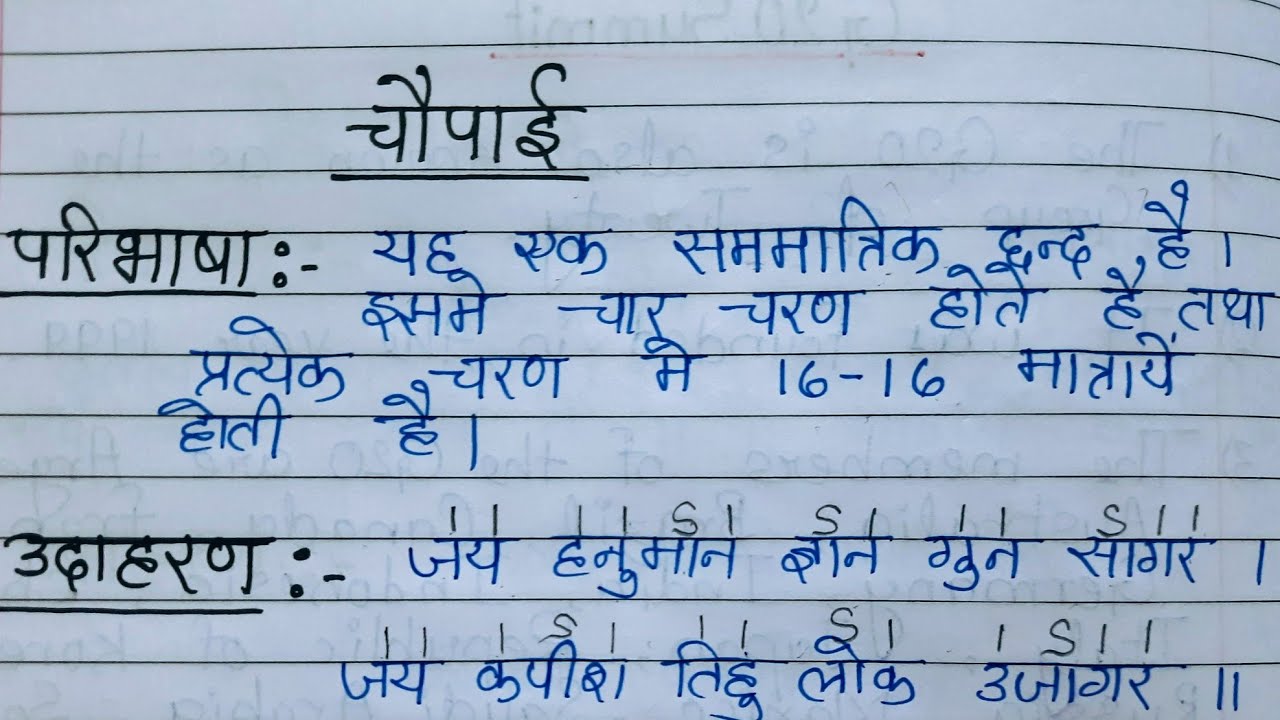 चौपाई
परिभाषा :- यह एक सममात्रिक छन्द है।
इसमे चार चरण होते है तथा
प्रत्येक चरण मे 16-16 मात्रायें
होती है।
।। ।।ऽ। ऽ। ।। ऽ।।
उदाहरण :- जय हनुमान ज्ञान गुन सागर ।
।। ।ऽ। ।। ऽ। ।ऽ।।
जय कपीश तिहु लोक उजागर ॥